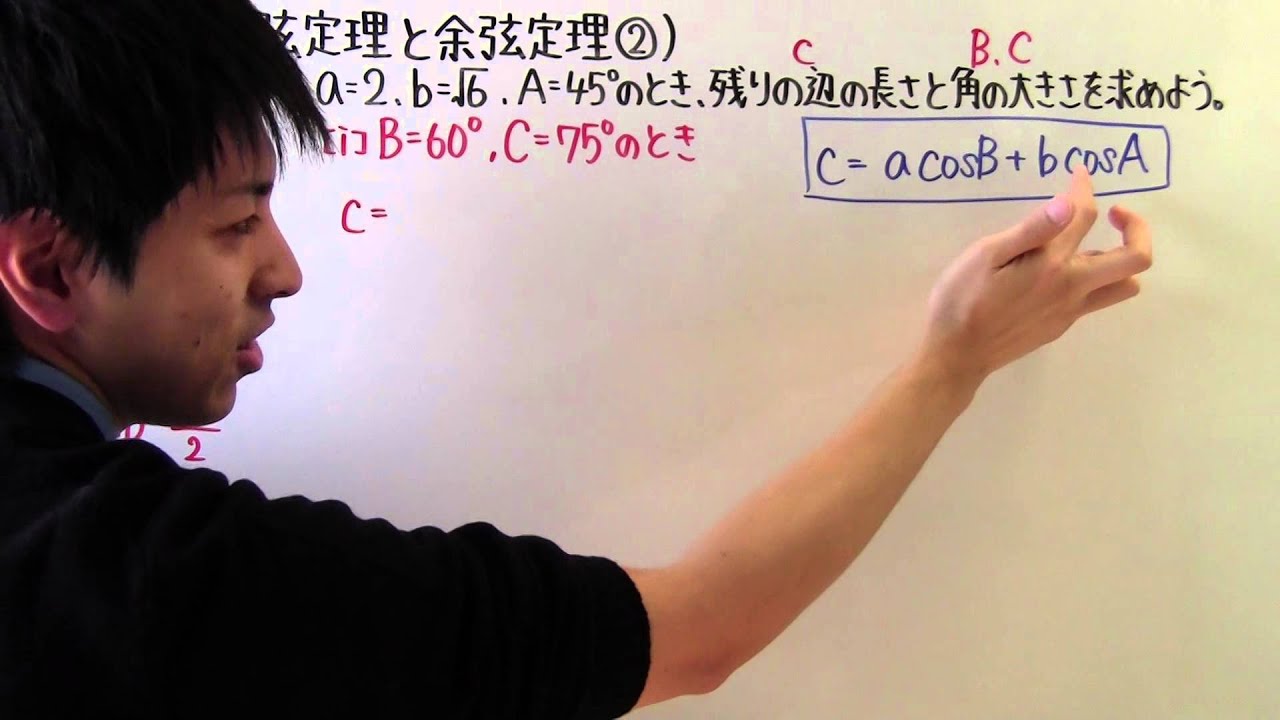 弦定理と余弦定理②)
c B、C
a=2、b=√6、A=45°のとき、残りの辺の長さと角の大きさを求めよう。
[i] B=60°、C=75°のとき
C = a cosB + b cosA
C =
2